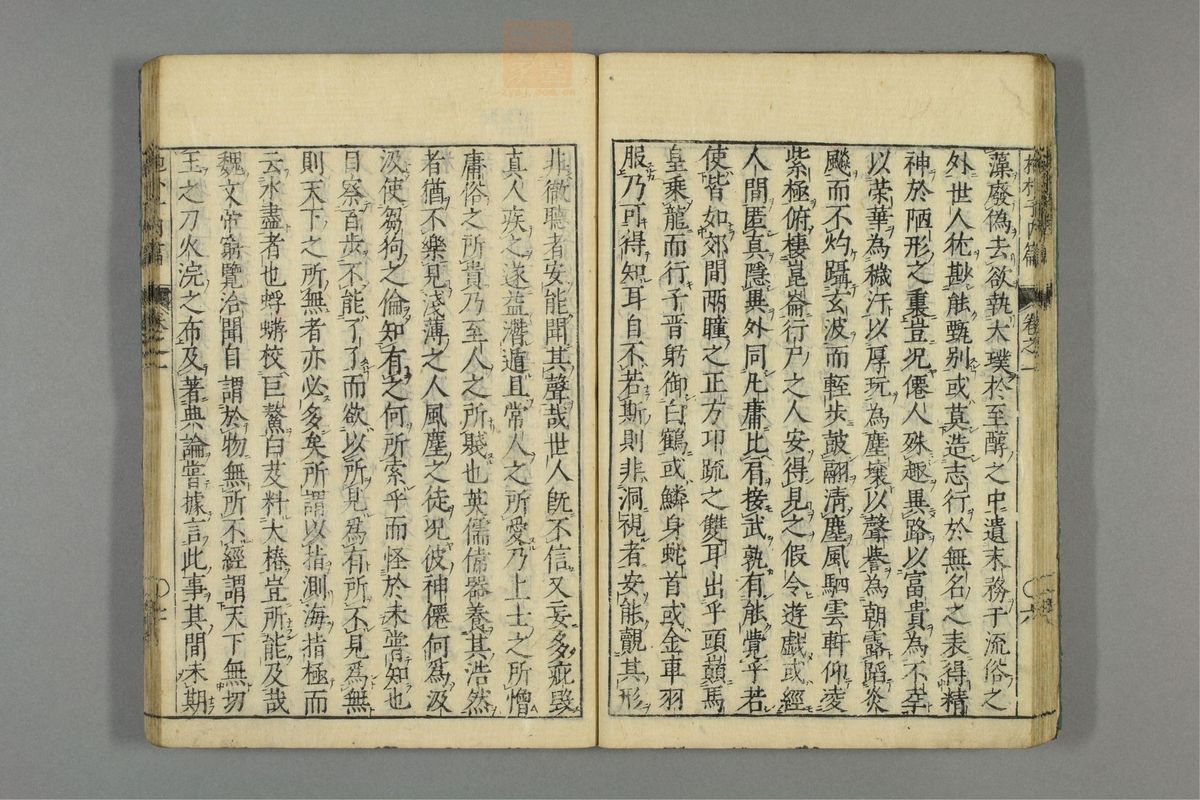 藻廢偽去欲執大璞於至醇之中遺末務于流俗之
外世人猶尠能甄別或莫造志行於無名之表得精
神於陋形之裏豈况僊人殊趣異路以富貴為不幸
以荣華為穢汙以厚玩為塵壤以聲譽為朝露蹈炎
飈而不灼躡玄波而輕步鼓翮清塵風駟雲軒仰凌
紫極俯棲崑崙行尸之人安得見之假令遊戱或經
人間匿真隱異外同凡庸比肩接武孰有能覺乎若
使皆如郊間兩瞳之正方卭疏之雙耳出乎頭巔馬
皇乘龍而行子晋躬御白鶴或鱗身蛇首或金車羽
服乃可得知耳自不若斯則非洞視者安能覿其形
非徹聽者安能聞其聲哉世人旣不信又妄多疵毀
真人疾之遂益潛遁且常人之所愛乃上士之所憎
庸俗之所貴乃至人之所賤也英儒偉器養其浩然
者猶不樂見淺薄之人風塵之徒况彼神僊何爲汲
汲使芻狗之倫知有之何所索乎而怪於未嘗知也
目察百步不能了了而欲以所見爲有所不見爲無
則天下之所無者亦必多矣所謂以指測海指極而
云水盡者也蜉蝣校巨鰲白芨料大椿豈所能及哉
魏文帝窮覽洽聞自謂於物無所不經謂天下無切
玉之刀火浣之布及著典論嘗據言此事其間未期
抱朴子内篇 卷之一 〇六